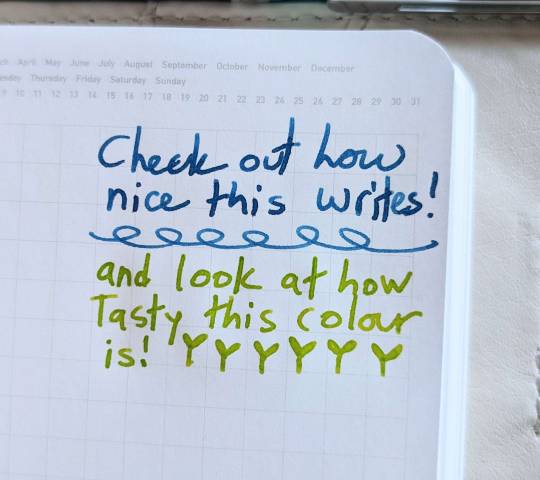 ch April May June July August September October November December
esday Thursday Friday Saturday Sunday
9 10 11 12 13 14 15 16 17 18 19 20 21 22 23 24 25 26 27 28 29 30 31
Check out how
nice this writes!
and look at how
Tasty this colour
is!